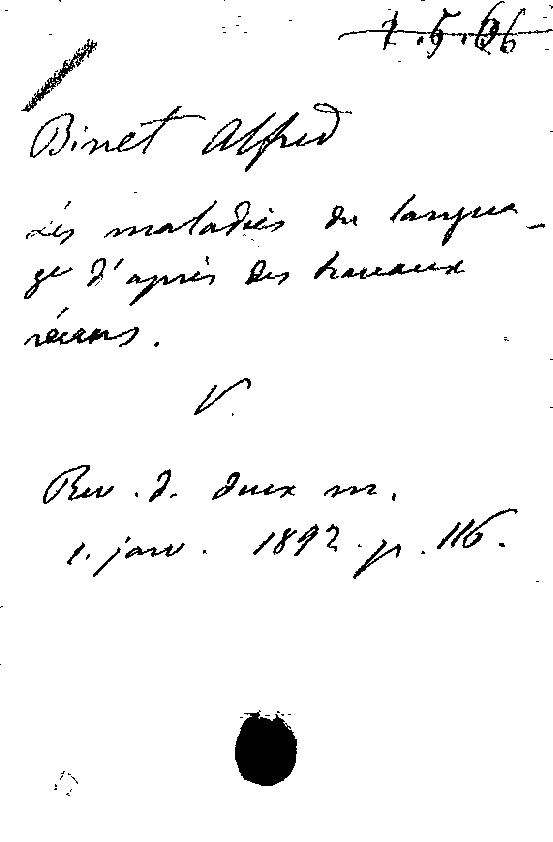 1.5.66
Binet Alfred
Les maladies du langua-
ge d'après des travaux
récens.
V.
Rev. d. deux m.
1. janv. 1892. p. 116.